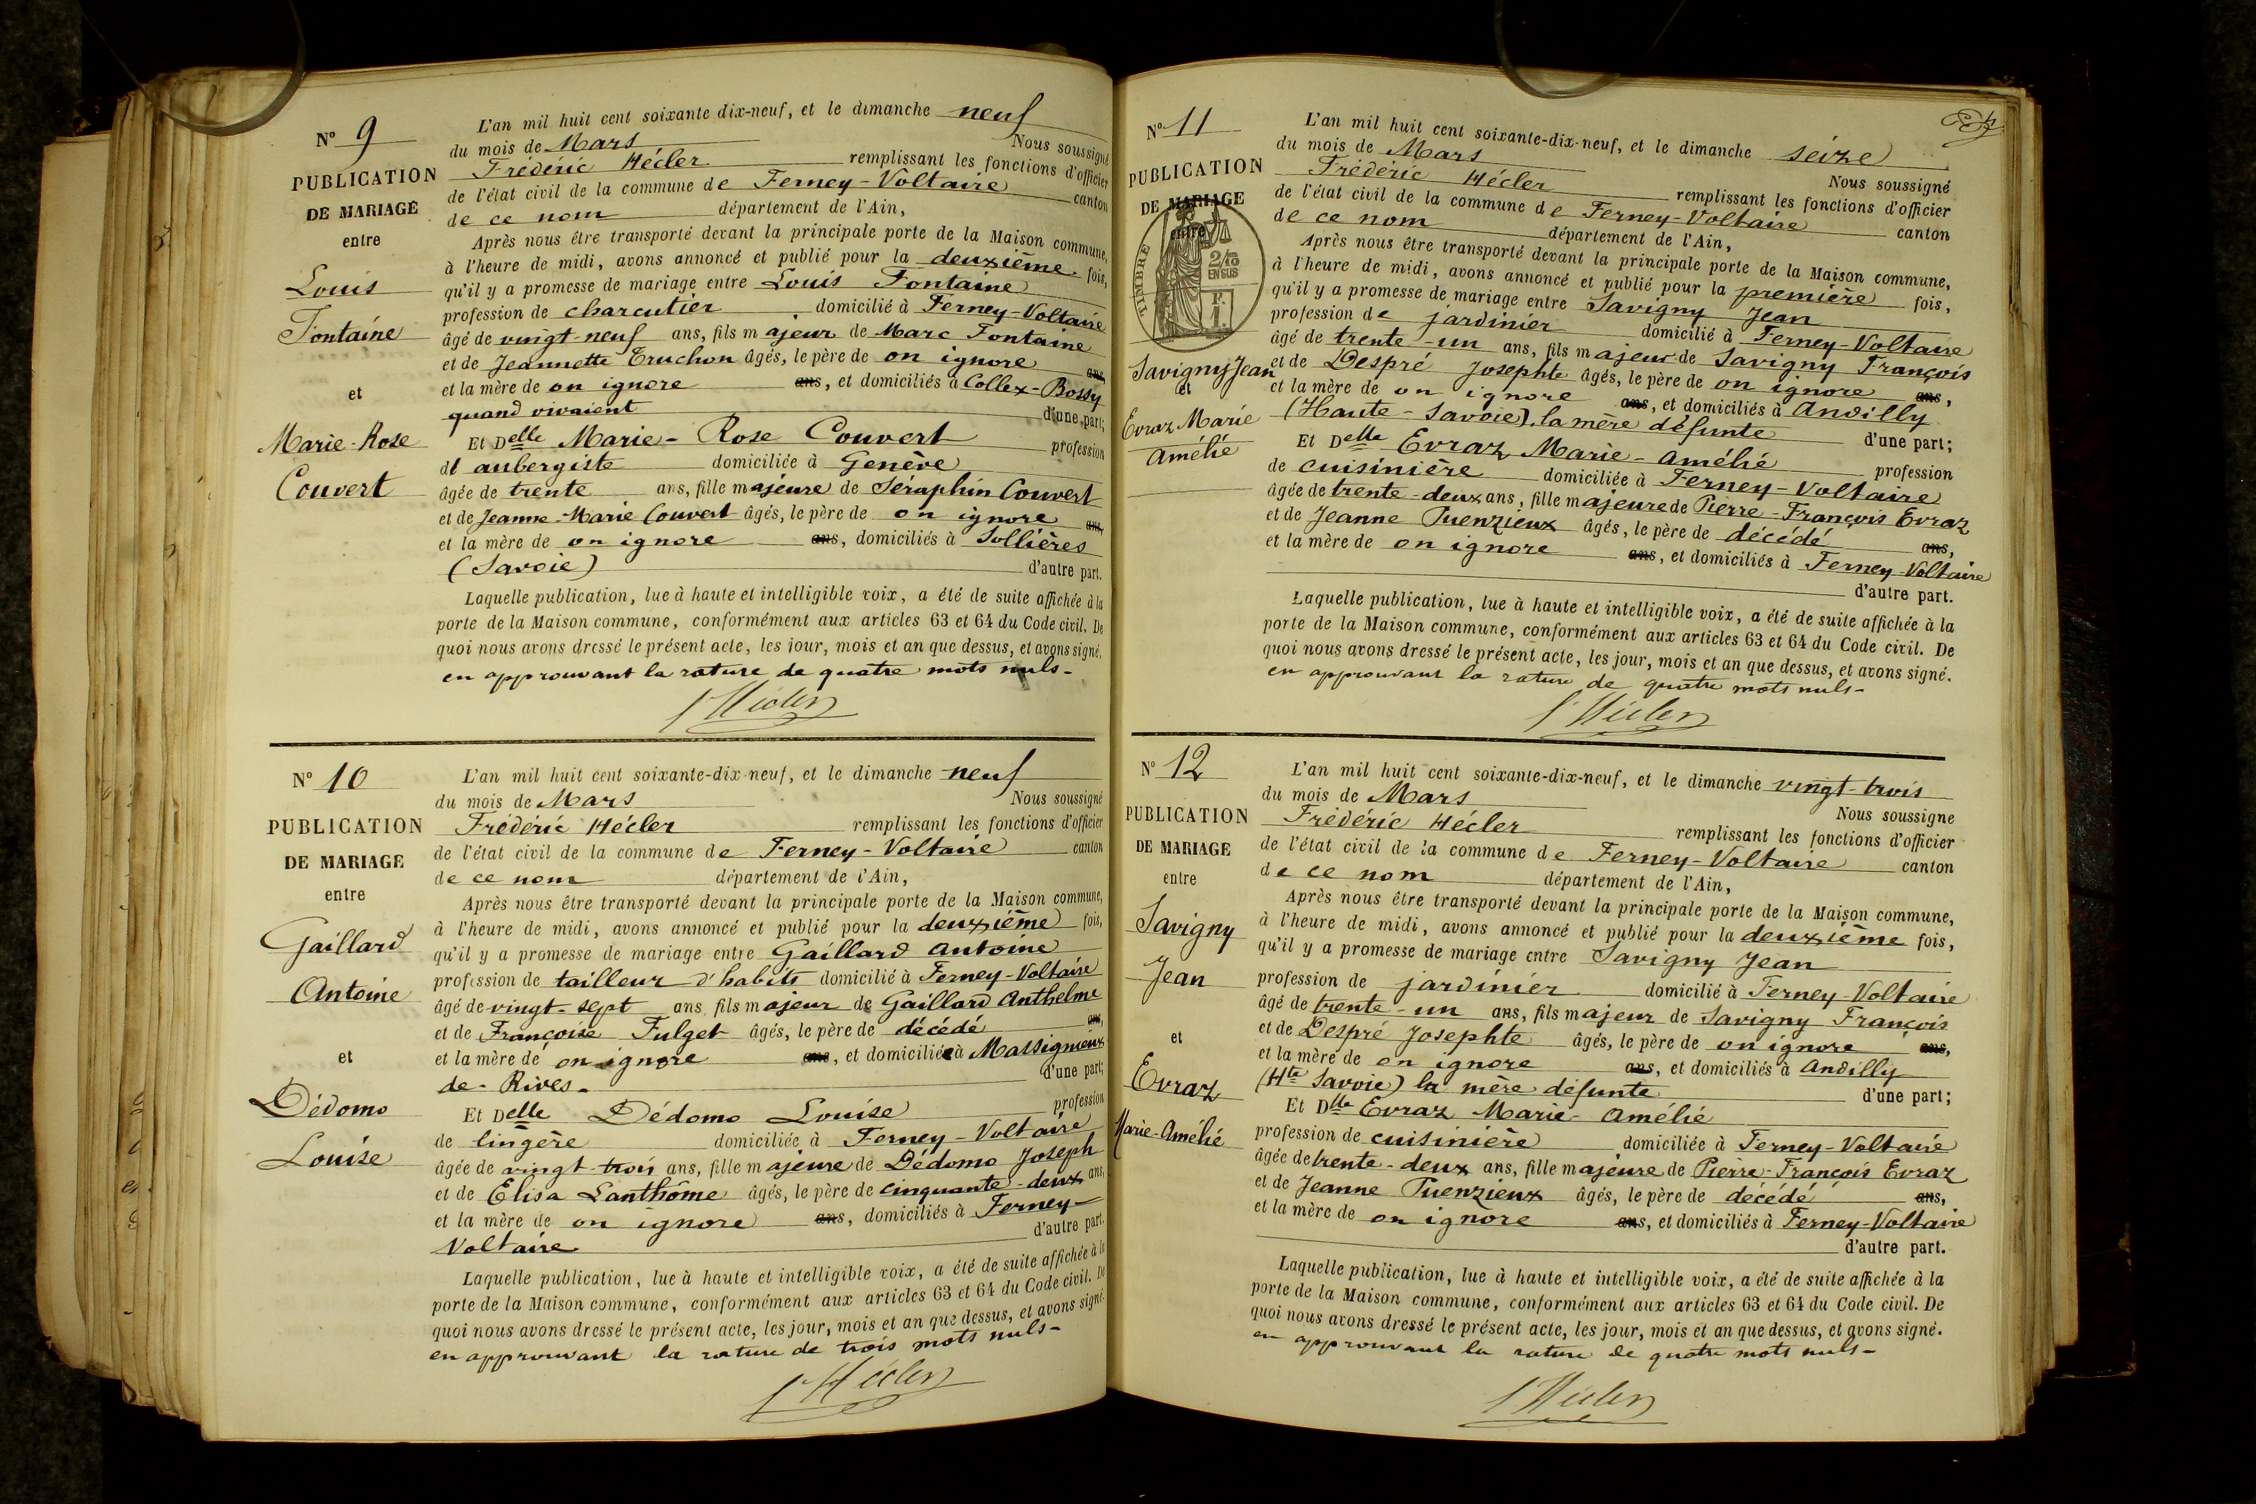 N° 9
PUBLICATION
DE MARIAGE
entre
Louis
Fontaine
et
Marie-Rose
Couvert
L'an mil huit cent soixante dix-neuf, et le dimanche neuf
du mois de Mars Nous soussigné
Frédéric Hécler remplissant les fonctions d'officier
de l'état civil de la commune de Ferney-Voltaire canton
de ce nom département de l'Ain,
Après nous être transporté devant la principale porte de la Maison commune,
à l'heure de midi, avons annoncé et publié pour la deuxième fois,
qu'il y a promesse de mariage entre Louis Fontaine
profession de charcutier domicilié à Ferney-Voltaire
âgé de vingt-neuf ans, fils majeur de Marc Fontaine
et de Jeannette Truchon âgés, le père de on ignore ans,
et la mère de on ignore ans, et domiciliés à Collex-Bossy
quand vivaient d'une part;
Et Delle Marie-Rose Couvert profession
d' aubergiste domiciliée à Genève
âgée de trente ans, fille majeure de Séraphin Couvert
et de Jeanne-Marie Couvert âgés, le père de on ignore ans,
et la mère de on ignore ans, domiciliés à Sollières
(Savoie) d'autre part.
Laquelle publication, lue à haute et intelligible voix, a été de suite affichée à la
porte de la Maison commune, conformément aux articles 63 et 64 du Code civil. De
quoi nous avons dressé le présent acte, les jour, mois et an que dessus, et avons signé.
en approuvant la rature de quatre mots nuls-
f Hécler
N° 10
PUBLICATION
DE MARIAGE
entre
Gaillard
Antoine
et
Dédomo
Louise
L'an mil huit cent soixante-dix-neuf, et le dimanche neuf
du mois de Mars Nous soussigné
Frédéric Hécler remplissant les fonctions d'officier
de l'état civil de la commune de Ferney-Voltaire canton
de ce nom département de l'Ain,
Après nous être transporté devant la principale porte de la Maison commune,
à l'heure de midi, avons annoncé et publié pour la deuxième fois,
qu'il y a promesse de mariage entre Gaillard Antoine
profession de tailleur d'habits domicilié à Ferney-Voltaire
âgé de vingt-sept ans fils majeur de Gaillard Anthelme
et de Françoise Fulget âgés, le père de décédé ans,
et la mère de on ignore ans, et domiciliée à Massignieux
de-Rives- d'une part;
Et Delle Dédomo Louise profession
de lingère domiciliée à Ferney-Voltaire
âgée de vingt-trois ans, fille majeure de Dédomo Joseph
et de Elisa Lanthôme âgés, le père de cinquante-deux ans,
et la mère de on ignore ans, domiciliés à Ferney-
Voltaire d'autre part.
Laquelle publication, lue à haute et intelligible voix, a été de suite affichée à la
porte de la Maison commune, conformément aux articles 63 et 64 du Code civil. De
quoi nous avons dressé le présent acte, les jour, mois et an que dessus, et avons signé.
en approuvant la rature de trois mots nuls-
f Hécler
N° 11
PUBLICATION
DE MARIAGE
entre
TIMBRE
2/10
EN SUS
Savigny Jean
et
Evraz Marie
Amélie
L'an mil huit cent soixante-dix-neuf, et le dimanche seize
du mois de Mars Nous soussigné
Frédéric Hécler remplissant les fonctions d'officier
de l'état civil de la commune de Ferney-Voltaire canton
de ce nom département de l'Ain,
Après nous être transporté devant la principale porte de la Maison commune,
à l'heure de midi, avons annoncé et publié pour la première fois,
qu'il y a promesse de mariage entre Savigny Jean
profession de jardinier domicilié à Ferney-Voltaire
âgé de trente-un ans, fils majeur de Savigny François
et de Despré Josephte âgés, le père de on ignore ans,
et la mère de on ignore ans, et domiciliés à Andilly
(Haute-Savoie), la mère défunte d'une part;
Et Delle Evraz Marie-Amélie profession
de cuisinière domiciliée à Ferney-Voltaire
âgée de trente-deux ans, fille majeure de Pierre-François Evraz
et de Jeanne Puenzieux âgés, le père de décédé ans,
et la mère de on ignore ans, et domiciliés à Ferney-Voltaire
d'autre part.
Laquelle publication, lue à haute et intelligible voix, a été de suite affichée à la
porte de la Maison commune, conformément aux articles 63 et 64 du Code civil. De
quoi nous avons dressé le présent acte, les jour, mois et an que dessus, et avons signé.
en approuvant la rature de quatre mots nuls-
f Hécler
N° 12
PUBLICATION
DE MARIAGE
entre
Savigny
Jean
et
Evraz
Marie-Amélie
L'an mil huit cent soixante-dix-neuf, et le dimanche vingt-trois
du mois de Mars Nous soussigné
Frédéric Hécler remplissant les fonctions d'officier
de l'état civil de la commune de Ferney-Voltaire canton
de ce nom département de l'Ain,
Après nous être transporté devant la principale porte de la Maison commune,
à l'heure de midi, avons annoncé et publié pour la deuxième fois,
qu'il y a promesse de mariage entre Savigny Jean
profession de jardinier domicilié à Ferney-Voltaire
âgé de trente-un ans, fils majeur de Savigny François
et de Despré Josephte âgés, le père de on ignore ans,
et la mère de on ignore ans, et domiciliés à Andilly
(Hte Savoie) la mère défunte d'une part;
Et Dlle Evraz Marie-Amélie
profession de cuisinière domiciliée à Ferney-Voltaire
âgée de trente-deux ans, fille majeure de Pierre-François Evraz
et de Jeanne Puenzieux âgés, le père de décédé ans,
et la mère de on ignore ans, et domiciliés à Ferney-Voltaire
d'autre part.
Laquelle publication, lue à haute et intelligible voix, a été de suite affichée à la
porte de la Maison commune, conformément aux articles 63 et 64 du Code civil. De
quoi nous avons dressé le présent acte, les jour, mois et an que dessus, et avons signé.
en approuvant la rature de quatre mots nuls-
f Hécler